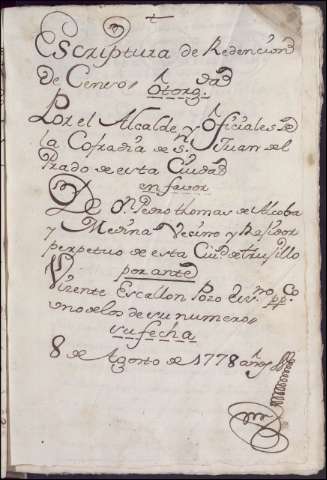 Escriptura de Redencion
de Censo, Otorg.dad
Por el Alcalde, y Oficiales de
la Cofradia de S.n Juan del
Prado de esta Ciudad
en favor
De D.n Pedro thomas de Alcoba
y Medina Vecino y Rexidor
perpetuo de esta Ciud de truxillo
por ante
Vizente Escallon Pozo Ess.no pp.co
uno de los de su numero,
su fecha
8 de Agosto de 1778 años